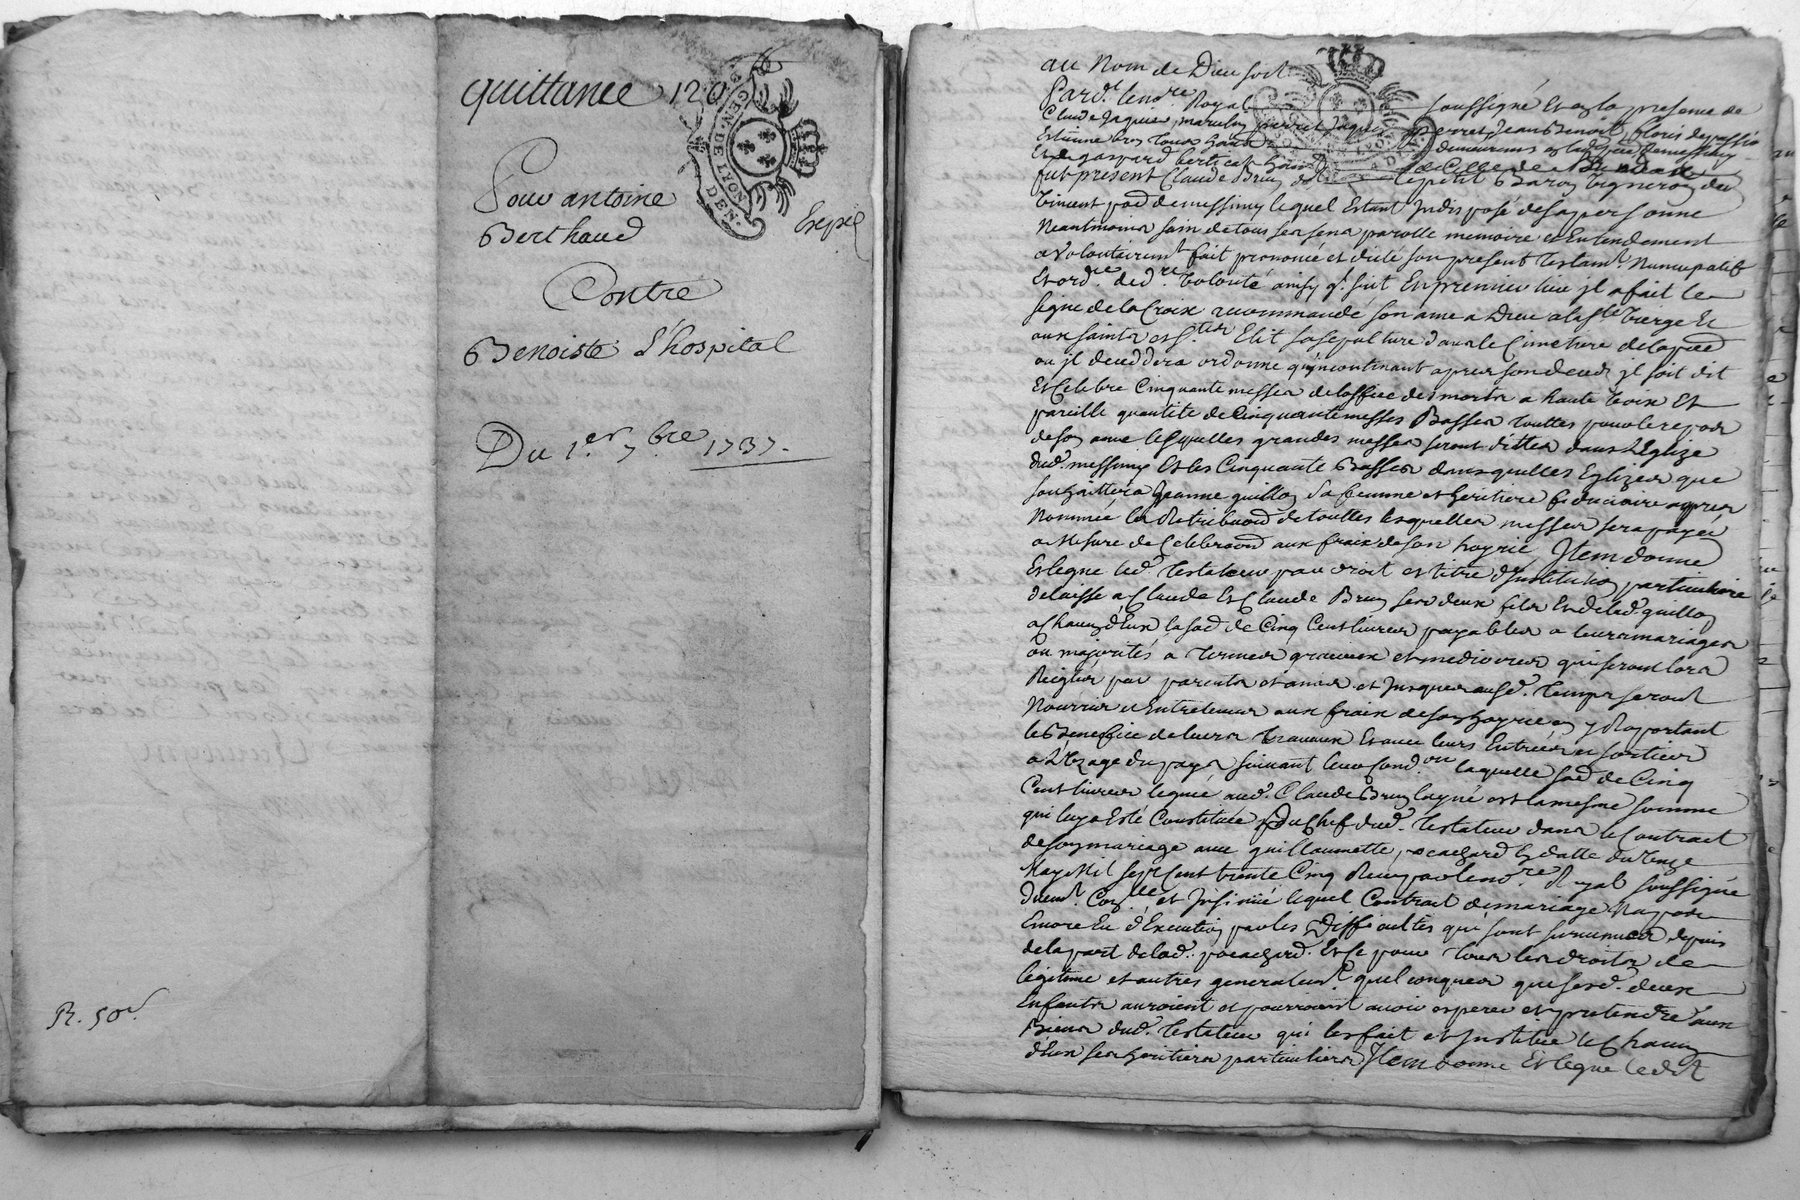 quittance 120
GEN. DE LYON
D EN.
Pour antoine
Berthaud
Expé
Contre
Benoiste L'hospital
Du 1.er 7.bre 1737.
R. 50s
au Nom de Dieu soit
Pard.t le no.re Royal soussigné Et en la presence de
Claude Jaques perret Jean Benoit
Estienne demeurans
Et de gaspard
fut present Claude Brun le petit Baron Vigneron du
Vincent parr. de messimy lequel Estant Indisposé de sa personne
Neantmoins sain de tous ses sens parolle memoire et Entendement
a Volontairemt fait prononcé et dicté son present Testamt. Nuncupatif
Et ord.re de d.re Volonté ainsy q. suit En premier lieu jl a fait le
signe de la Croix recommandé son ame a Dieu a la ste Vierge Et
aux saints et stes Elit sa sepulture dans le Cimetiere de la parr.
ou jl decedera ordonne qu'incontinant apres son deces jl soit dit
Et Celebre Cinquante messes de l'office des morts a haute Voix Et
pareille quantité de Cinquante messes Basses Touttes pour le repos
de son ame lesquelles grandes messes seront dittes dans L'Eglize
dud. messimy Et les Cinquante Basses dans quelles Eglizes que
souhaittera Jeanne guillon sa femme et heritiere fiduciaire apres
Nommée la Retribuon de touttes lesquelles messes sera payée
a Mesure de Celebraon aux fraix de son hoyrie Jtem donne
Et legue led. Testateur par droit et titre d'Institution particuliere
delaisse a Claude Et Claude Brun ses deux fils Et de lad. guillon
a Chaun d'Eux la so.e de Cinq Cent livres payables a leurs mariages
ou majorités a termes gracieux et mediocres qui seront lors
Reiglés par parents et amis et Jusques ausd. temps seront
Nourris et Entretenus aux fraix de son hoyrie en y Raportant
le Benefice de leurs travaux Et avec leurs Entrées et sorties
a L'uzage du pays suivant leur cond.on laquelle so.e de Cinq
Cent livres leguée aud. Claude Brun layné est la mesme somme
qui luy a Esté Constituée du Chef dud. Testateur dans le Contract
de son mariage avec guillaumette pocachard En datte du
May Mil sept Cent trente Cinq Receu par le no.re Royal soussigné
duemt. Con.llé et Insinué lequel Contract de mariage Na pas
Encore Eu d'Execution par les Difficultés qui sont survenues depuis
de la part de lad. pocachard. Et Ce pour tous les droits de
legitime et autres generalemt. quelconques que sesd. deux
Enfants auroient et pourroient avoir esperer et pretendre aux
Biens dud. Testateur qui les fait et Institue le Chaun
d'Eux ses heritiers particuliers Jtem donne Et legue ledit